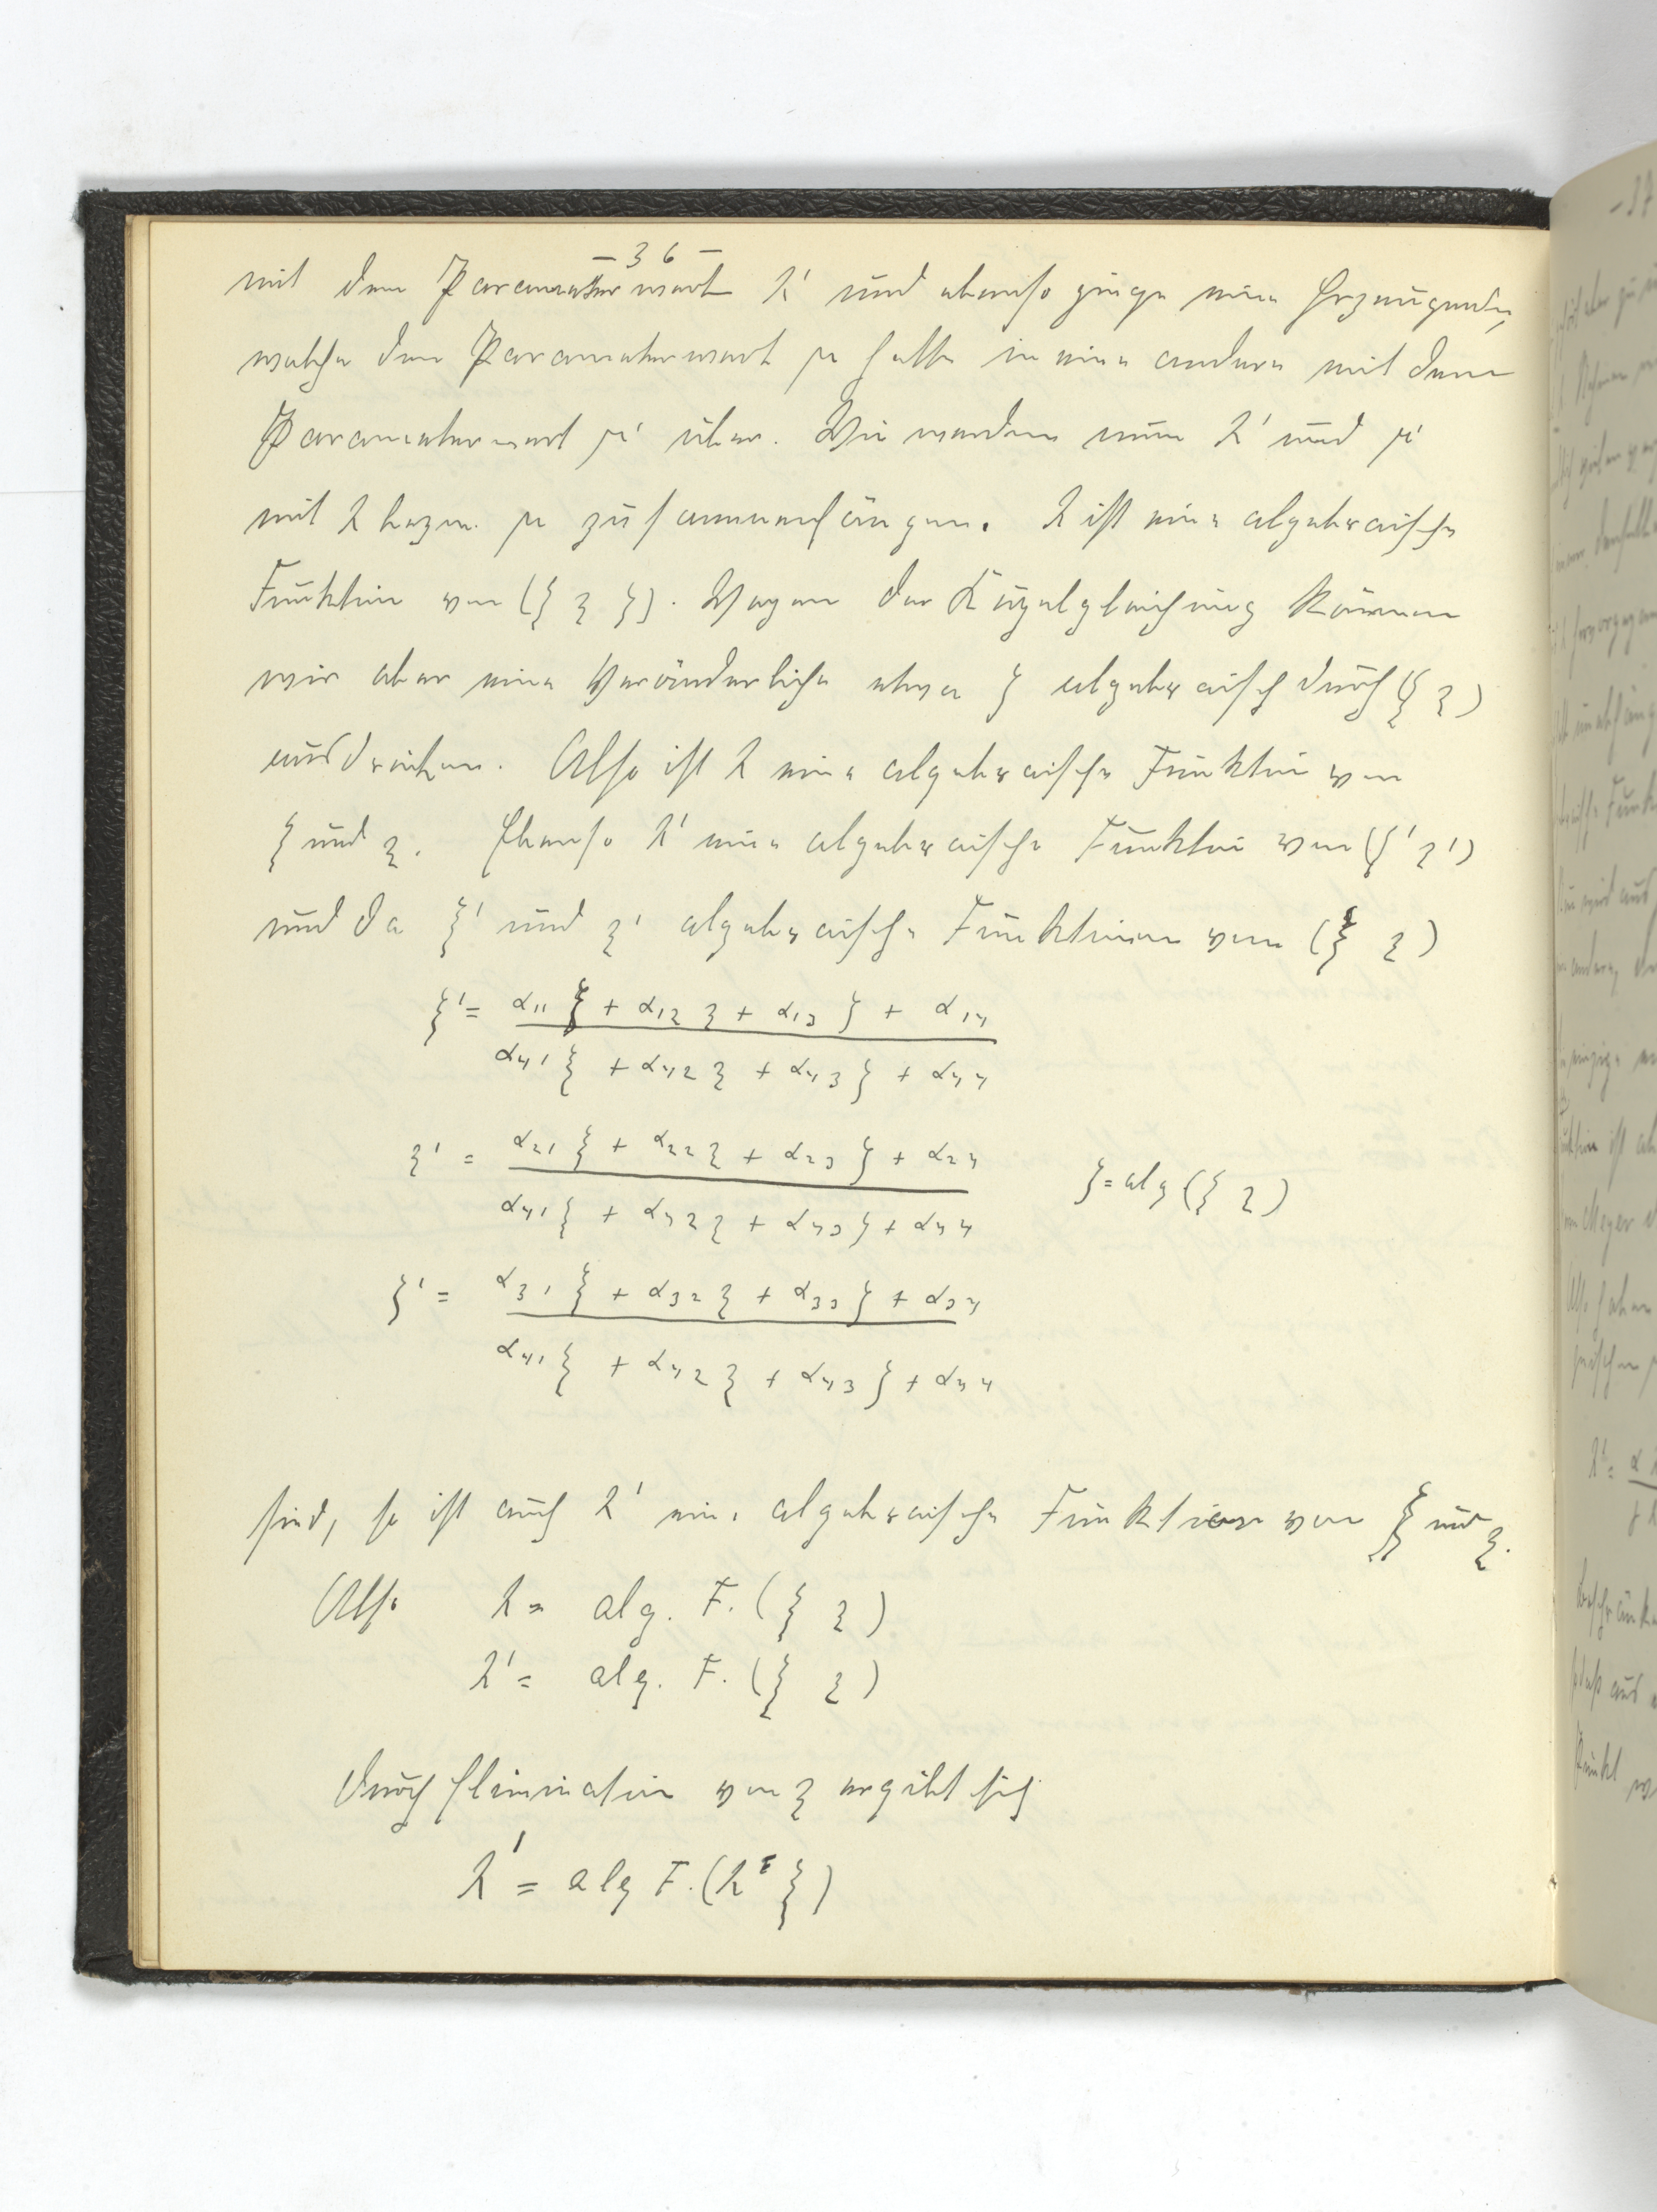 – 36 –
mit dem Parameterwert λ' und ebenso ginge eine Erzeugende,
welche den Parameterwert μ hatte in eine andere mit dem
Parameterwert μ' über. Wie werden nun λ' und μ'
mit λ bezw. μ zusammenhängen. λ ist eine algebraische
Funktion von (ξ η ζ). Wegen der Kugelgleichung können
wir aber eine Veränderliche etwa ζ algebraisch durch (ξ η)
ausdrücken. Also ist λ eine algebraische Funktion von
ξ und η. Ebenso λ' eine algebraische Funktion von (ξ' η')
und da ξ' und η' algebraische Funktionen von (ξ η)
ξ' = α11 ξ + α12 η + α13 ζ + α14
α41 ξ + α42 η + α43 ζ + α44
η' = α21 ξ + α22 η + α23 ζ + α24
α41 ξ + α42 η + α43 ζ + α44
ζ = alg (ξ η)
ζ' = α31 ξ + α32 η + α33 ζ + α34
α41 ξ + α42 η + α43 ζ + α44
sind, so ist auch λ' eine algebraische Funktion von ξ und η.
Also λ = alg. F. (ξ η)
λ' = alg. F. (ξ η)
durch Elimination von η ergibt sich
λ' = alg F. (λ ξ)